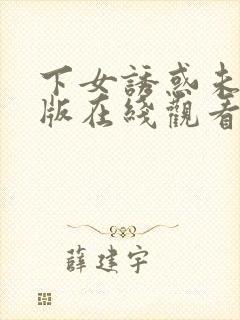 下女誘惑未
版在綫觀看
薛建宇